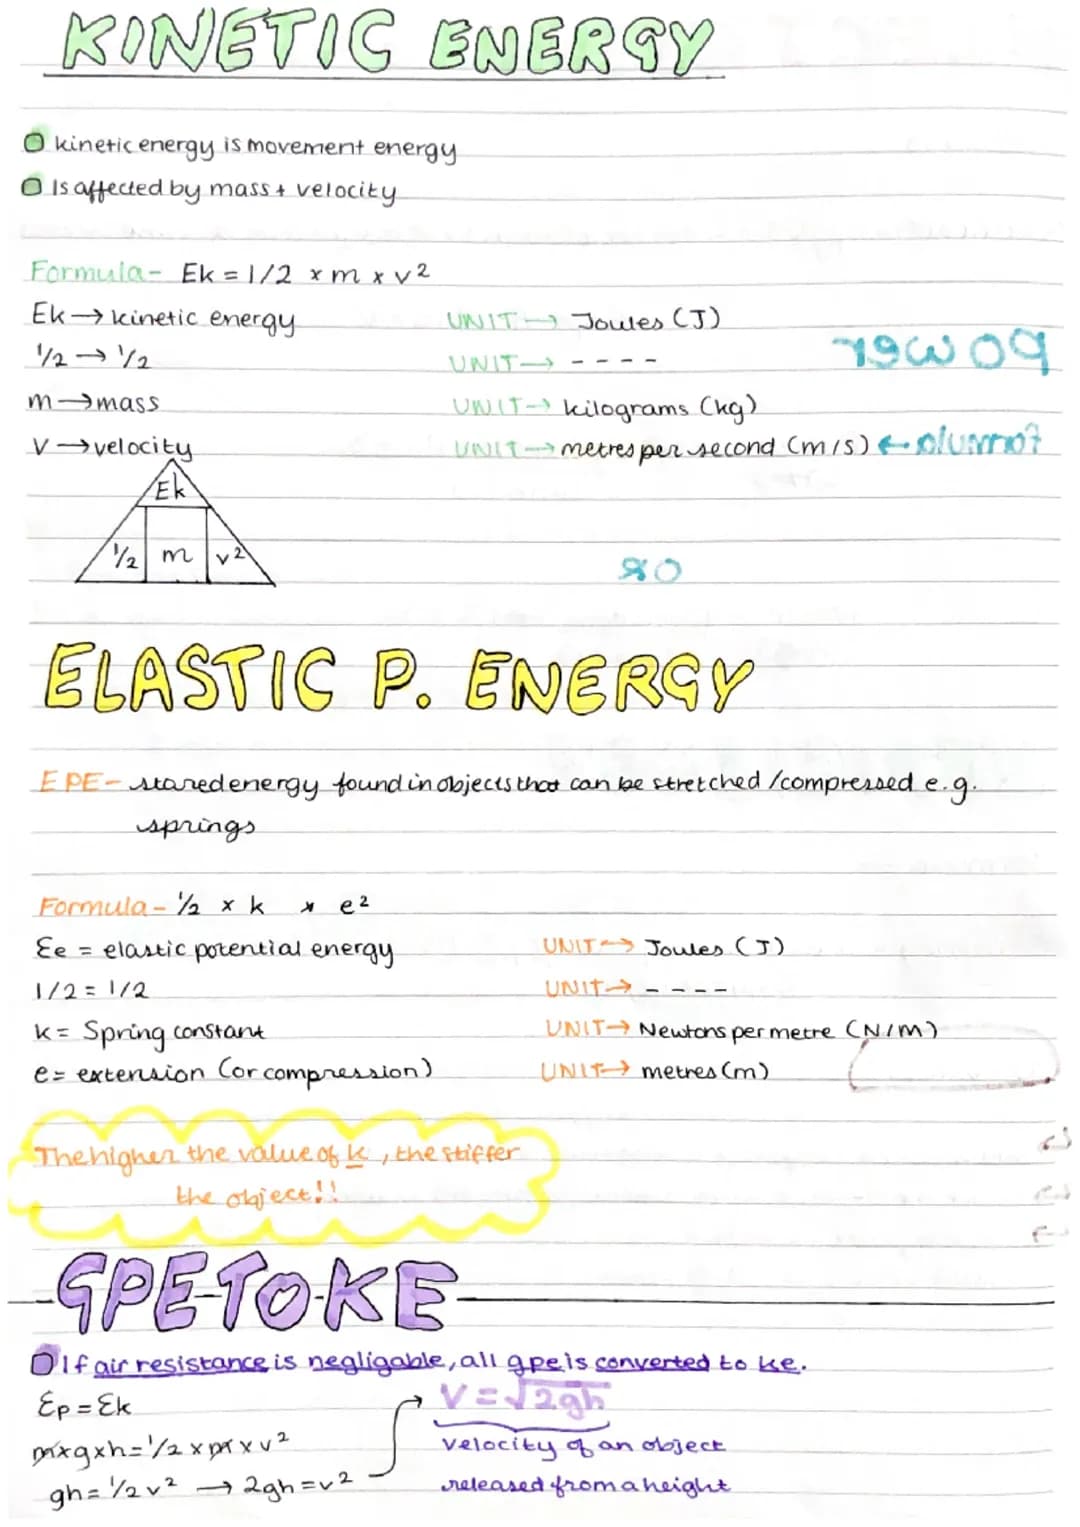 KINETIC ENERGY
kinetic energy is movement energy
Is affected by mass + velocity
Formula- Ek = 1/2 x m x v²
Ek → kinetic energy UNIT → Joules (J)
1/2 → 1/2 UNIT → ----
power
m → mass UNIT → kilograms (kg)
V → velocity UNIT → metres per second (m/s) ←
Ek
1/2 m v²
ELASTIC P. ENERGY
EPE- stored energy found in objects that can be stretched/compressed e.g.
springs
Formula- 1/2 x k x e²
Ee = elastic potential energy UNIT → Joules (J)
1/2 = 1/2 UNIT → ----
k = Spring constant UNIT → Newtons per metre (N/M)
e = extension (or compression) UNIT → metres (m)
The higher the value of k, the stiffer
the object!!
GPE TO KE
If air resistance is negligable, all gpe is converted to ke.
Ep = Ek
V = √2gh
mxgxh = 1/2 x m x v²
velocity of an object
gh = 1/2 v² → 2gh = v²
released from a height